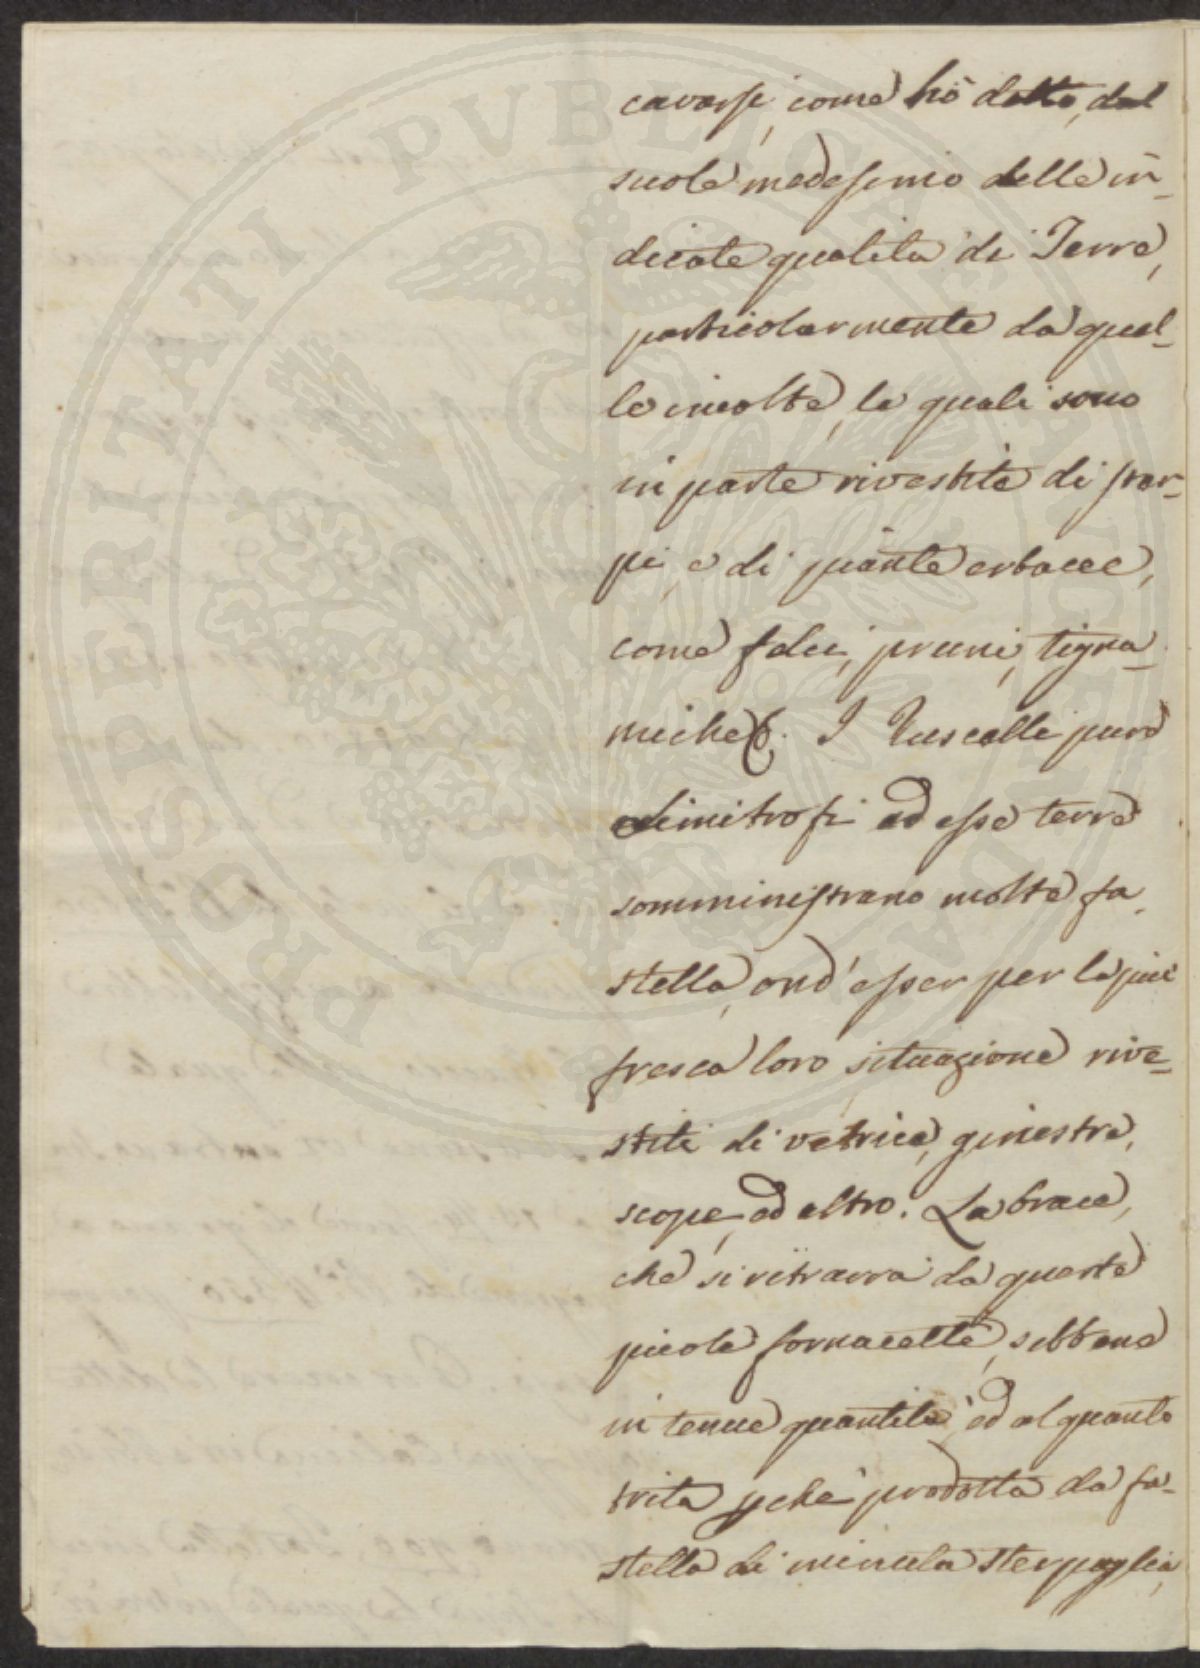 PROSPERITATI PUBLICAE AUGENDAE
cavarsi, come hò detto, dal
suolo medesimo delle in-
dicate qualita di Terre,
particolarmente da quel-
le incolte, le quali sono
in parte rivestite di ster-
pi, e di piante erbacee,
come felci, pruni, tigna-
miche &. I Ruscelli pure
limitrofi ad esse terre
somministrano molte fa-
stella, ond' esser per la più
fresca loro situazione rive-
stiti di vetrice, ginestre,
scope, ed altro. La brace,
che si ritrarrà da queste
picole fornacette, sebbene
in tenue quantità ed alquanto
trita pche prodotta da fa-
stella di minuta sterpaglia,